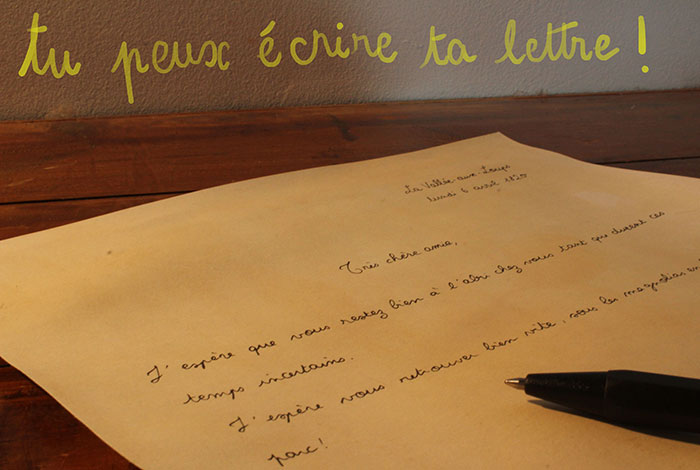 tu peux écrire ta lettre !
La Vallée-aux-Loups
lundi 6 avril
Très chère amie,
J'espère que vous restez bien à l'abri chez vous tant que durent ces
temps incertains.
J'espère vous retrouver bien vite, sous les magnolias
parc !